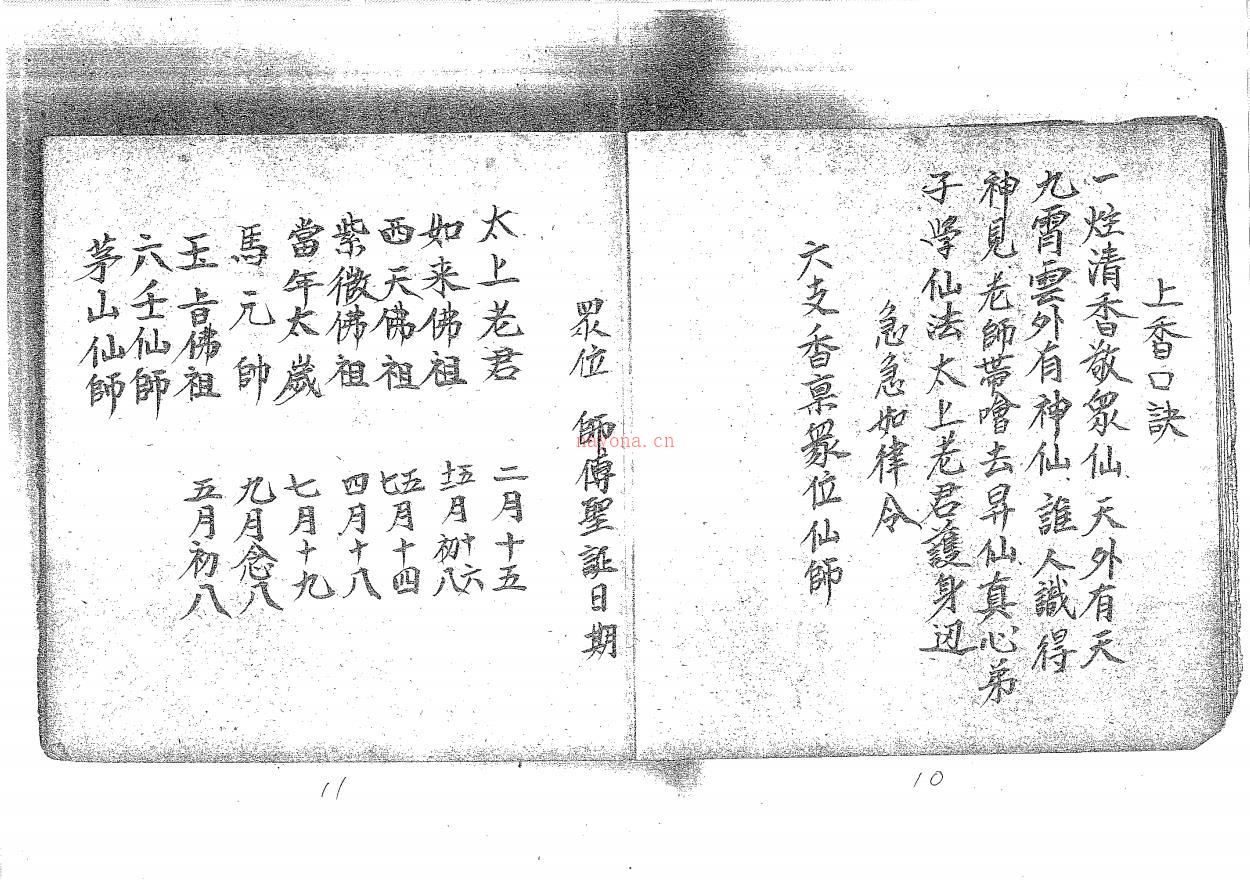 上香口訣
一炷清香敬眾仙天外有天
九霄雲外有神仙誰人識得
神見老師帶噲去昇仙真心弟
子学仙法太上老君護身边
急急如律令
六支香禀眾位仙師
10
眾位 師傅聖誕日期
太上老君 二月十五
如来佛祖 五月十六 初八
西天佛祖 五月十四
紫微佛祖 四月十八
當年太歲 七月十九
馬元帥 九月念八
玉旨佛祖 五月初八
六壬仙師
茅山仙師
11
nayona.cn